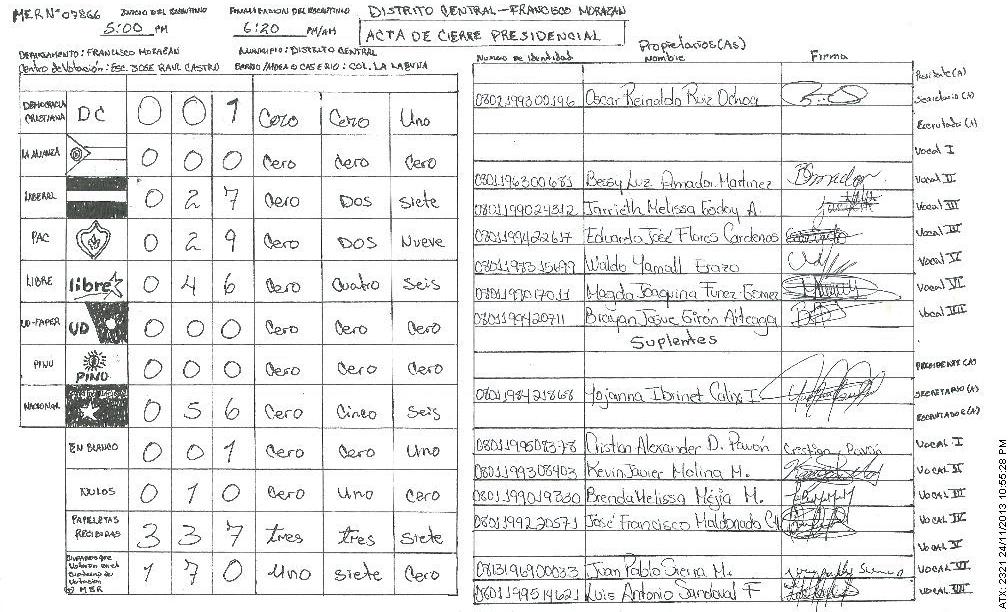 MER Nº 07866 INICIO DEL ESCRUTINIO FINALIZACION DEL ESCRUTINIO DISTRITO CENTRAL - FRANCISCO MORAZAN
5:00 PM 6:20 PM/AM ACTA DE CIERRE PRESIDENCIAL
DEPARTAMENTO: FRANCISCO MORAZAN MUNICIPIO: DISTRITO CENTRAL
Centro de Votación: ESC. JOSE RAUL CASTRO BARRIO/ALDEA O CASERIO: COL. LA LAGUNA
DEMOCRACIA CRISTIANA DC 0 0 1 Cero Cero Uno
LA ALIANZA 0 0 0 Cero Cero Cero
LIBERAL 0 2 7 Cero DOS Siete
PAC 0 2 9 Cero DOS Nueve
LIBRE libre 0 4 6 Cero Cuatro Seis
UD-FAPER UD 0 0 0 Cero Cero Cero
PINU PINU 0 0 0 Cero Cero Cero
NACIONAL 0 5 6 Cero Cinco Seis
EN BLANCO 0 0 1 Cero Cero Uno
NULOS 0 1 0 Cero Uno Cero
PAPELETAS RECIBIDAS 3 3 7 tres tres siete
Votaron en el Cuaderno de Votacion 1 7 0 Uno siete Cero
Propietarios (As)
Numero de Identidad Nombre Firma
Presidente (A)
0802199300196 Oscar Reinaldo Ruiz Ochoa Secretario (A)
Escrutador (A)
Vocal I
0801196300681 Bessy Luz Amador Martinez BAmador Vocal II
0801199024312 Jarrieth Melissa Godoy A. Vocal III
0801199422617 Eduardo José Flores Cardenas Vocal IV
Waldo Yamall Erazo Vocal V
Magda Joaquina Funez Gomez Vocal VI
0801199420711 Brayan Josue Girón Arteaga Vocal VII
Suplentes
PRESIDENTE (A)
0801198421868 Yojanna Ibrinet Calix I. SECRETARIO (A)
ESCRUTADOR (A)
0801199508378 Cristian Alexander D. Pavón Cristian Pavón VOCAL I
0801199308403 Kevin Javier Molina M. VOCAL II
Brenda Melissa Mejia M. VOCAL III
0801199220571 José Francisco Maldonado VOCAL IV
VOCAL V
0813196900033 Juan Pablo Sierra M. VOCAL VI
0801199514621 Luis Antonio Sandoval F VOCAL VII
24/11/2013 10:55:28 PM